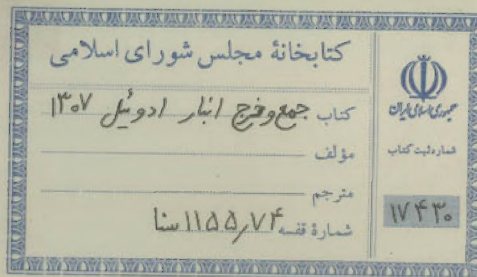 کتابخانهٔ مجلس شورای اسلامی
کتاب جمع و خرج انبار ادوئیل ۱۳۰۷
مؤلف
مترجم
شمارهٔ قفسه ۱۱۵۵٫۷۴ سنا
جمهوری اسلامی ایران
شماره ثبت کتاب
۱۷۴۳۰